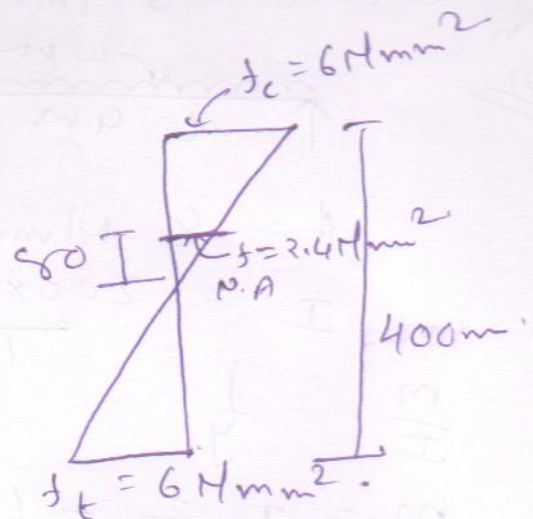 fc = 6 N/mm²
80
f = 2.4 N/mm²
N.A
400m
ft = 6 N/mm².